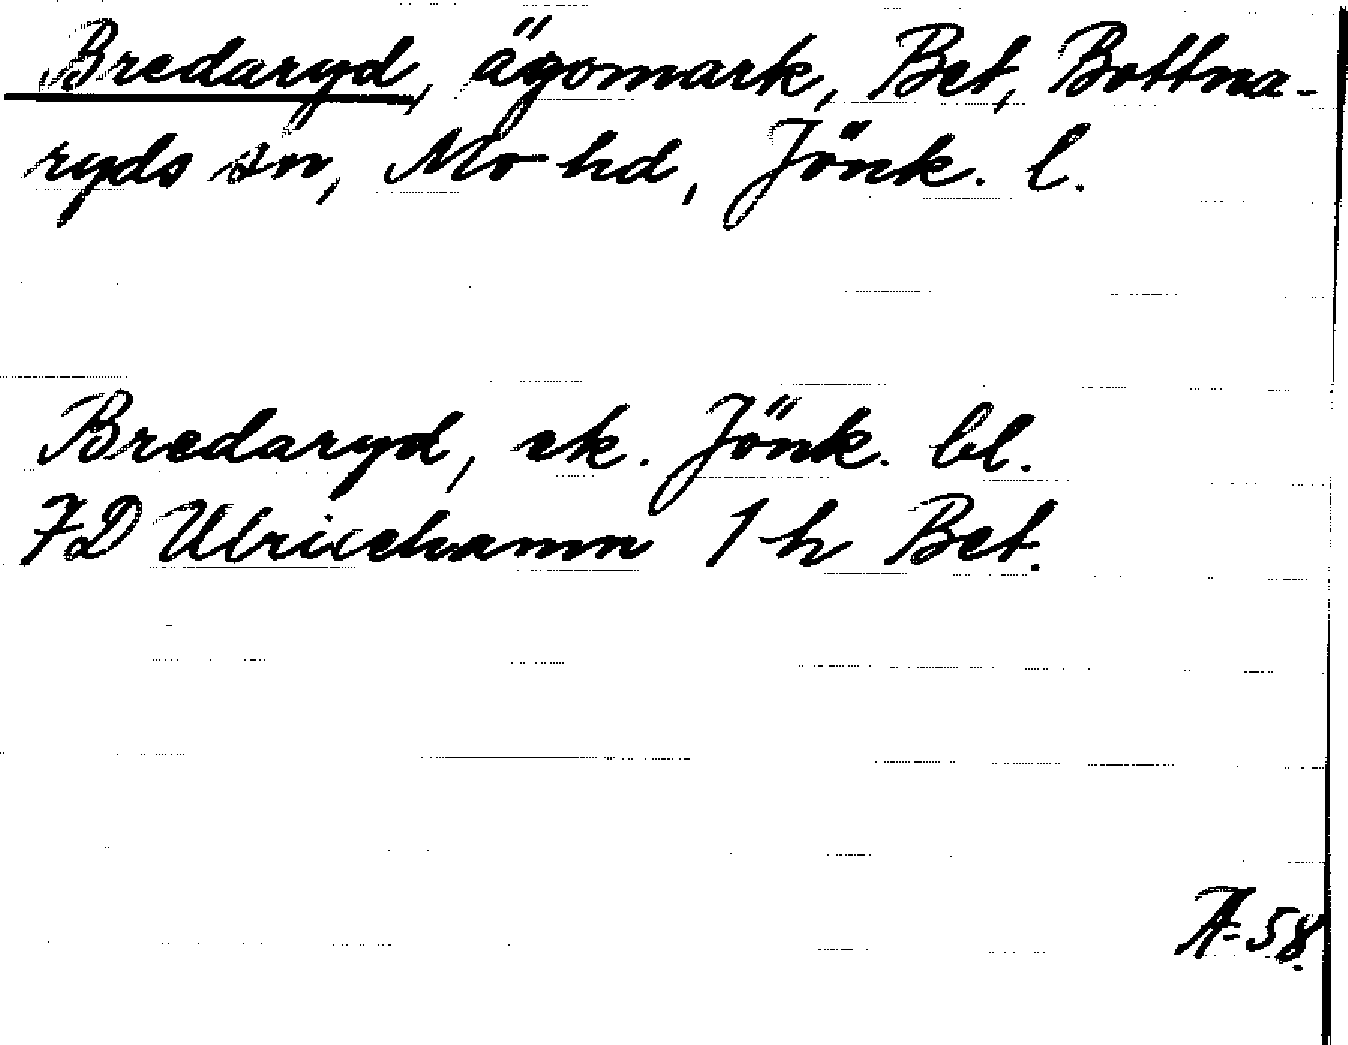 Bredaryd, ägomark, Bet, Bottna-
ryds sn, Mo hd, Jönk. l.
Bredaryd, ek. Jönk. bl.
7D Ulricehamn 1 h Bet.
A-58.